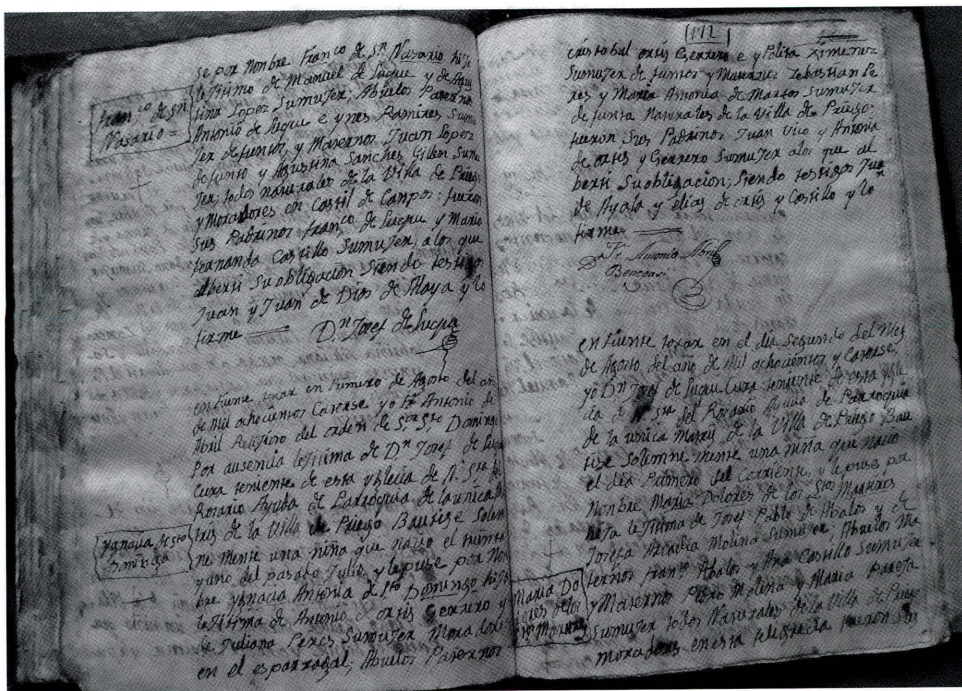 se por Nombre Franco de Sn Nasario hijo
lexitimo de Manuel de Luque y de Agus
tina Lopez Sumuxer; Abuelos Paternos
Antonio de Luque e ynes Ramires Sumu
Jer defuntos, y Maternos Juan Lopez
defunto y Agustina Sanches Gillen Sumu
Jer; todos naturales de la Villa de Priego
y Moradores en Castil de Campos: fueron
Sus Padrinos franco de Luque y Maria
fernanda Castillo Sumuxer, a los que
alberti Su obligacion Siendo testigos
Juan y Juan de Dios de Maya y lo
firme
Dn Josef de Luque
Franco de Sn
Nasario =
en fuente toxar en Primero de Agosto del año
de Mil ochocientos Catorse yo fr Antonio de
Abril Relijioso del orden de Sto Domingo
Por ausencia lexitima de Dn Josef de Luque
Cura teniente de esta yglecia de N. Sra del
Rosario Ayuda de Parroquia de la unica Ma
tris de la Villa de Priego Bautise Solem
ne Mente una niña que nacio el treinta
y uno del pasado Julio y le puse por Nom
bre Ygnacia Antonia de Sto Domingo hija
lexitima de Antonio de ortis Gerrero y
de Juliana Peres Sumuxer Moradores
en el esparragal, Abuelos Paternos
Ygnacia de Sto
Domingo
[172]
cristobal ortis Gerrero e y Polita Ximenez
Sumuxer defuntos y Maternos Sebastian Pe
res y Maria Antonia de Martos Sumuxer
defunta Naturales de la Villa de Priego
fueron Sus Padrinos Juan Vico y Antonia
de ortis y Gerrero Sumuxer a los que al
berti Su obligacion; Siendo testigos Jua
de Ayala y elias de ortis y Castillo y lo
firme
Fr Antonio Abril
en fuente toxar en el dia Segundo del Mes
de Agosto del año de Mil ochocientos y Catorse,
yo Dn Josef de Luque Cura teniente de esta ygle
cia de N. Sra del Rosario Ayuda de Parroquia
de la unica Matris de la Villa de Priego Bau
tise Solemne mente una niña que nacio
el dia Primero del Corriente, y le puse por
Nombre Maria Dolores de los Stos Martires
hija lexitima de Josef Pablo de Abalos y de
Josefa Molina Sumuxer, Abuelos Pa
ternos franco Abalos y Ana Castillo Sumuxer
y Maternos Pedro Molina y Maria Pareja
Sumuxer todos Naturales de la Villa de Priego
moradores en esta feligrecia fueron Sus
Maria Do
lores de los
Stos Martires